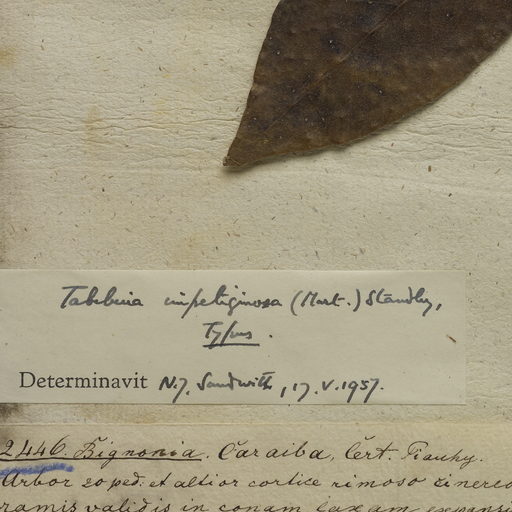 Tabebuia impetiginosa (Mart.) Standley,
Typus.
Determinavit N.Y. Sandwith, 17.V.1957.
2446. Bignonia. Caraiba, Cert. Piauhy.
Arbor 20 ped. et altior cortice rimoso cinereo
ramis validis in conam laxam expansi